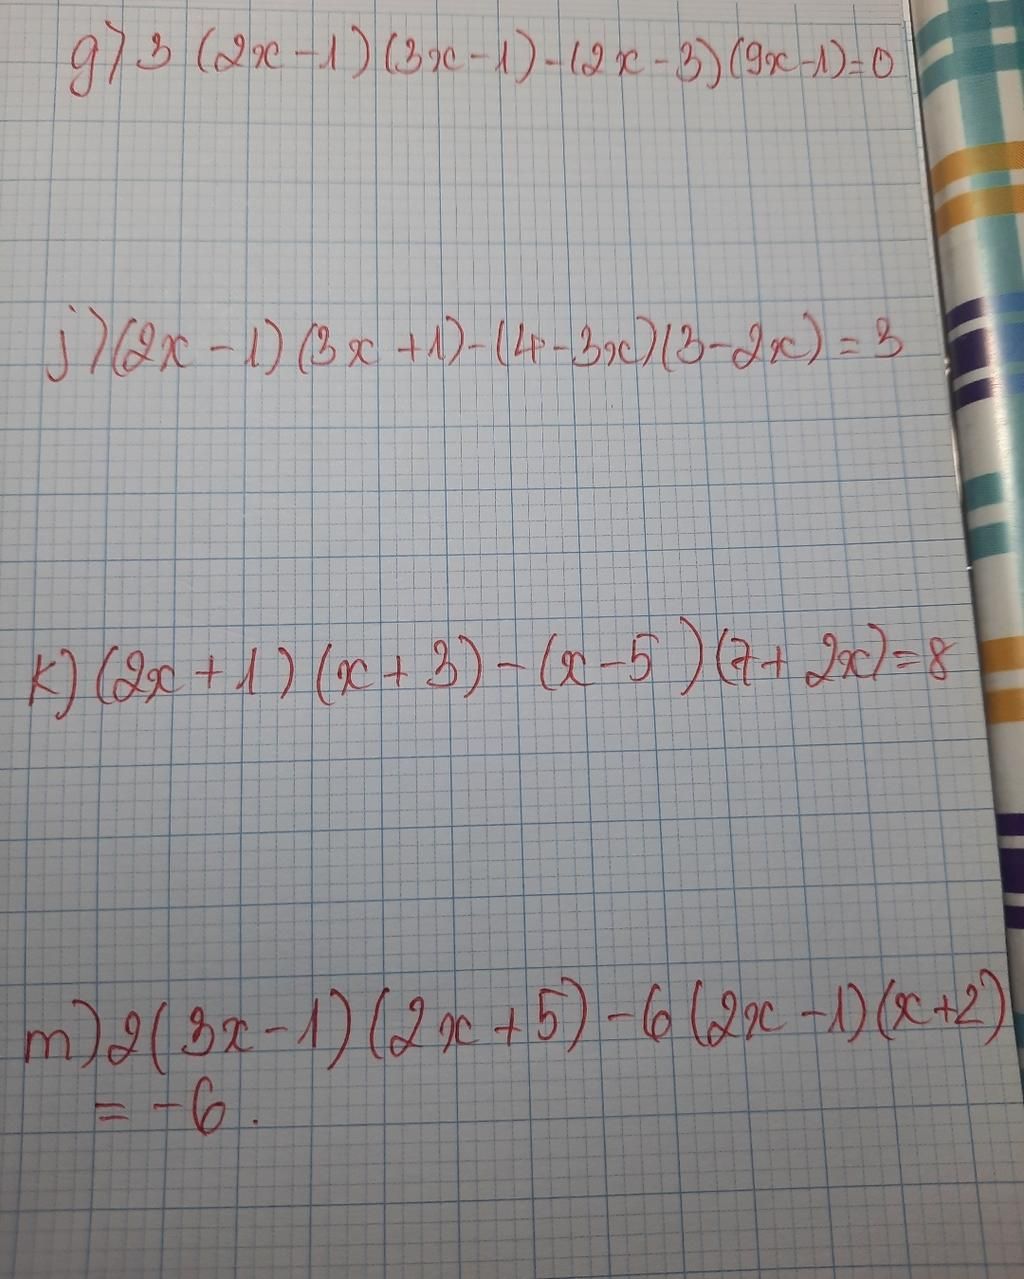 g) 3 (2x - 1) (3x - 1) - (2x - 3) (9x - 1) = 0
j) (2x - 1) (3x + 1) - (4 - 3x) (3 - 2x) = 3
k) (2x + 1) (x + 3) - (x - 5) (7 + 2x) = 8
m) 2 (3x - 1) (2x + 5) - 6 (2x - 1) (x + 2)
= - 6 .